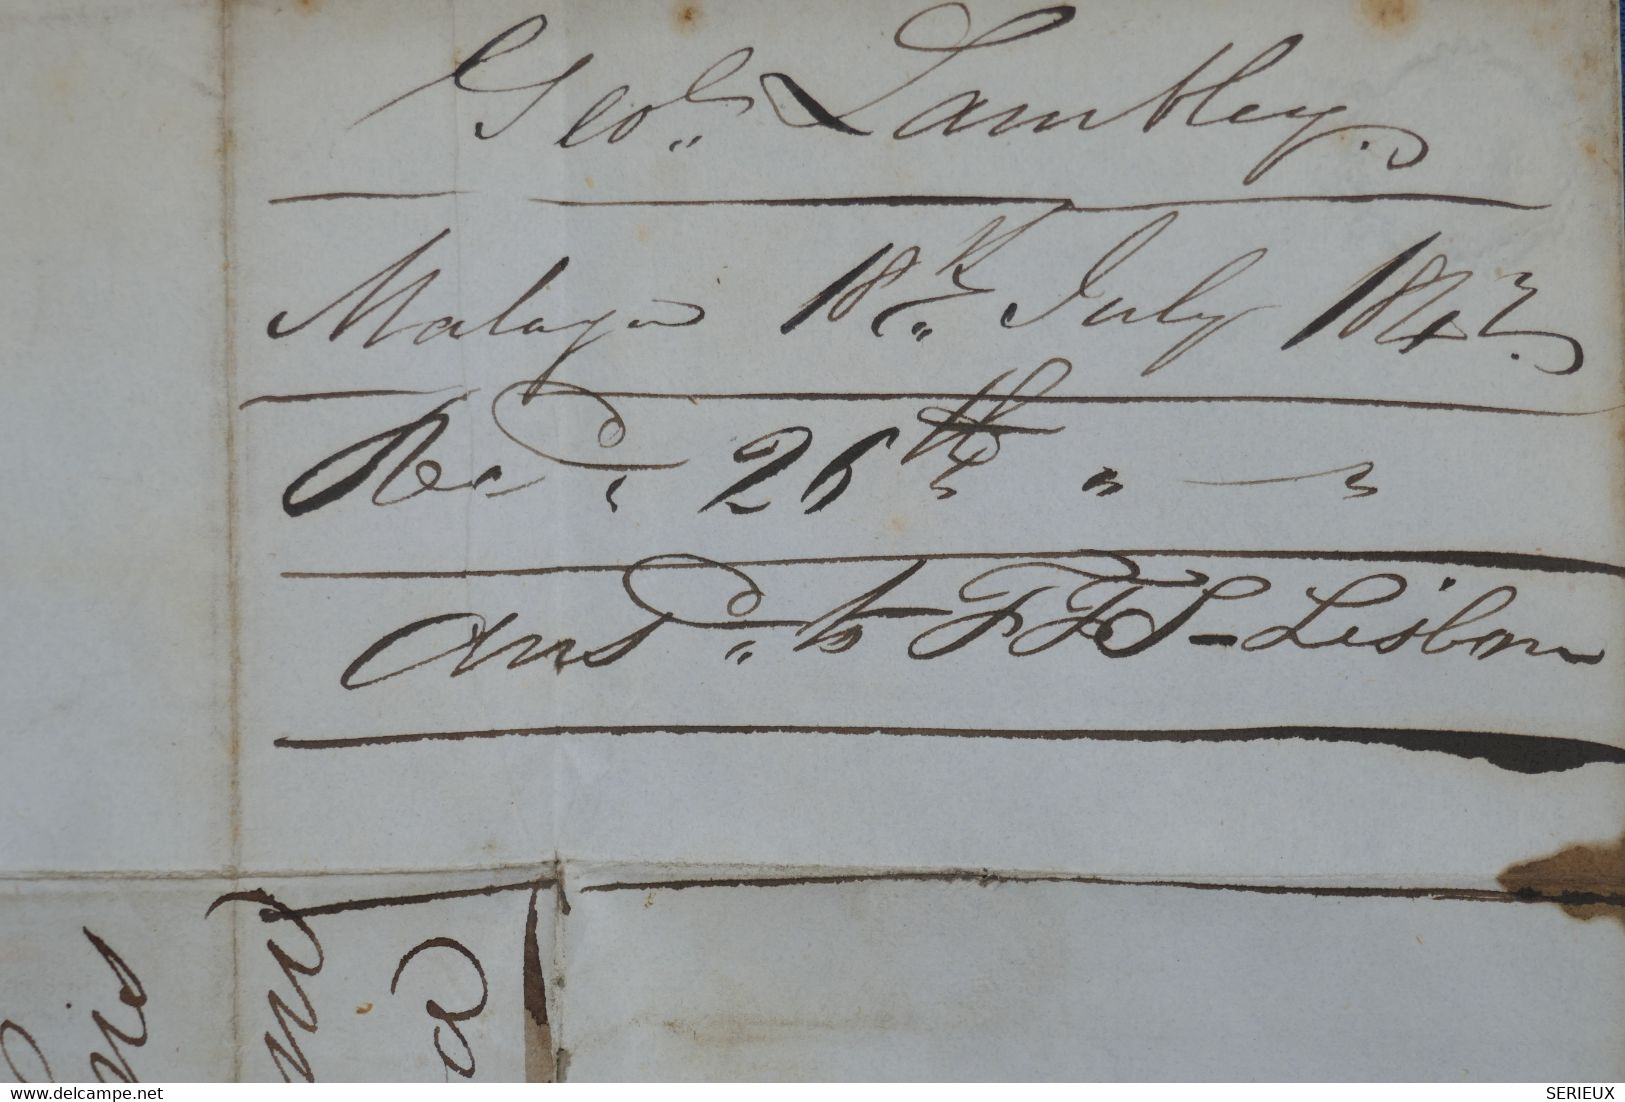 Geo. Lambley.
Malaga 18th July 1843.
Recd 26th " —
Ansd to F.F.S - Lisbon
nis
a
delcampe.net
SERIEUX